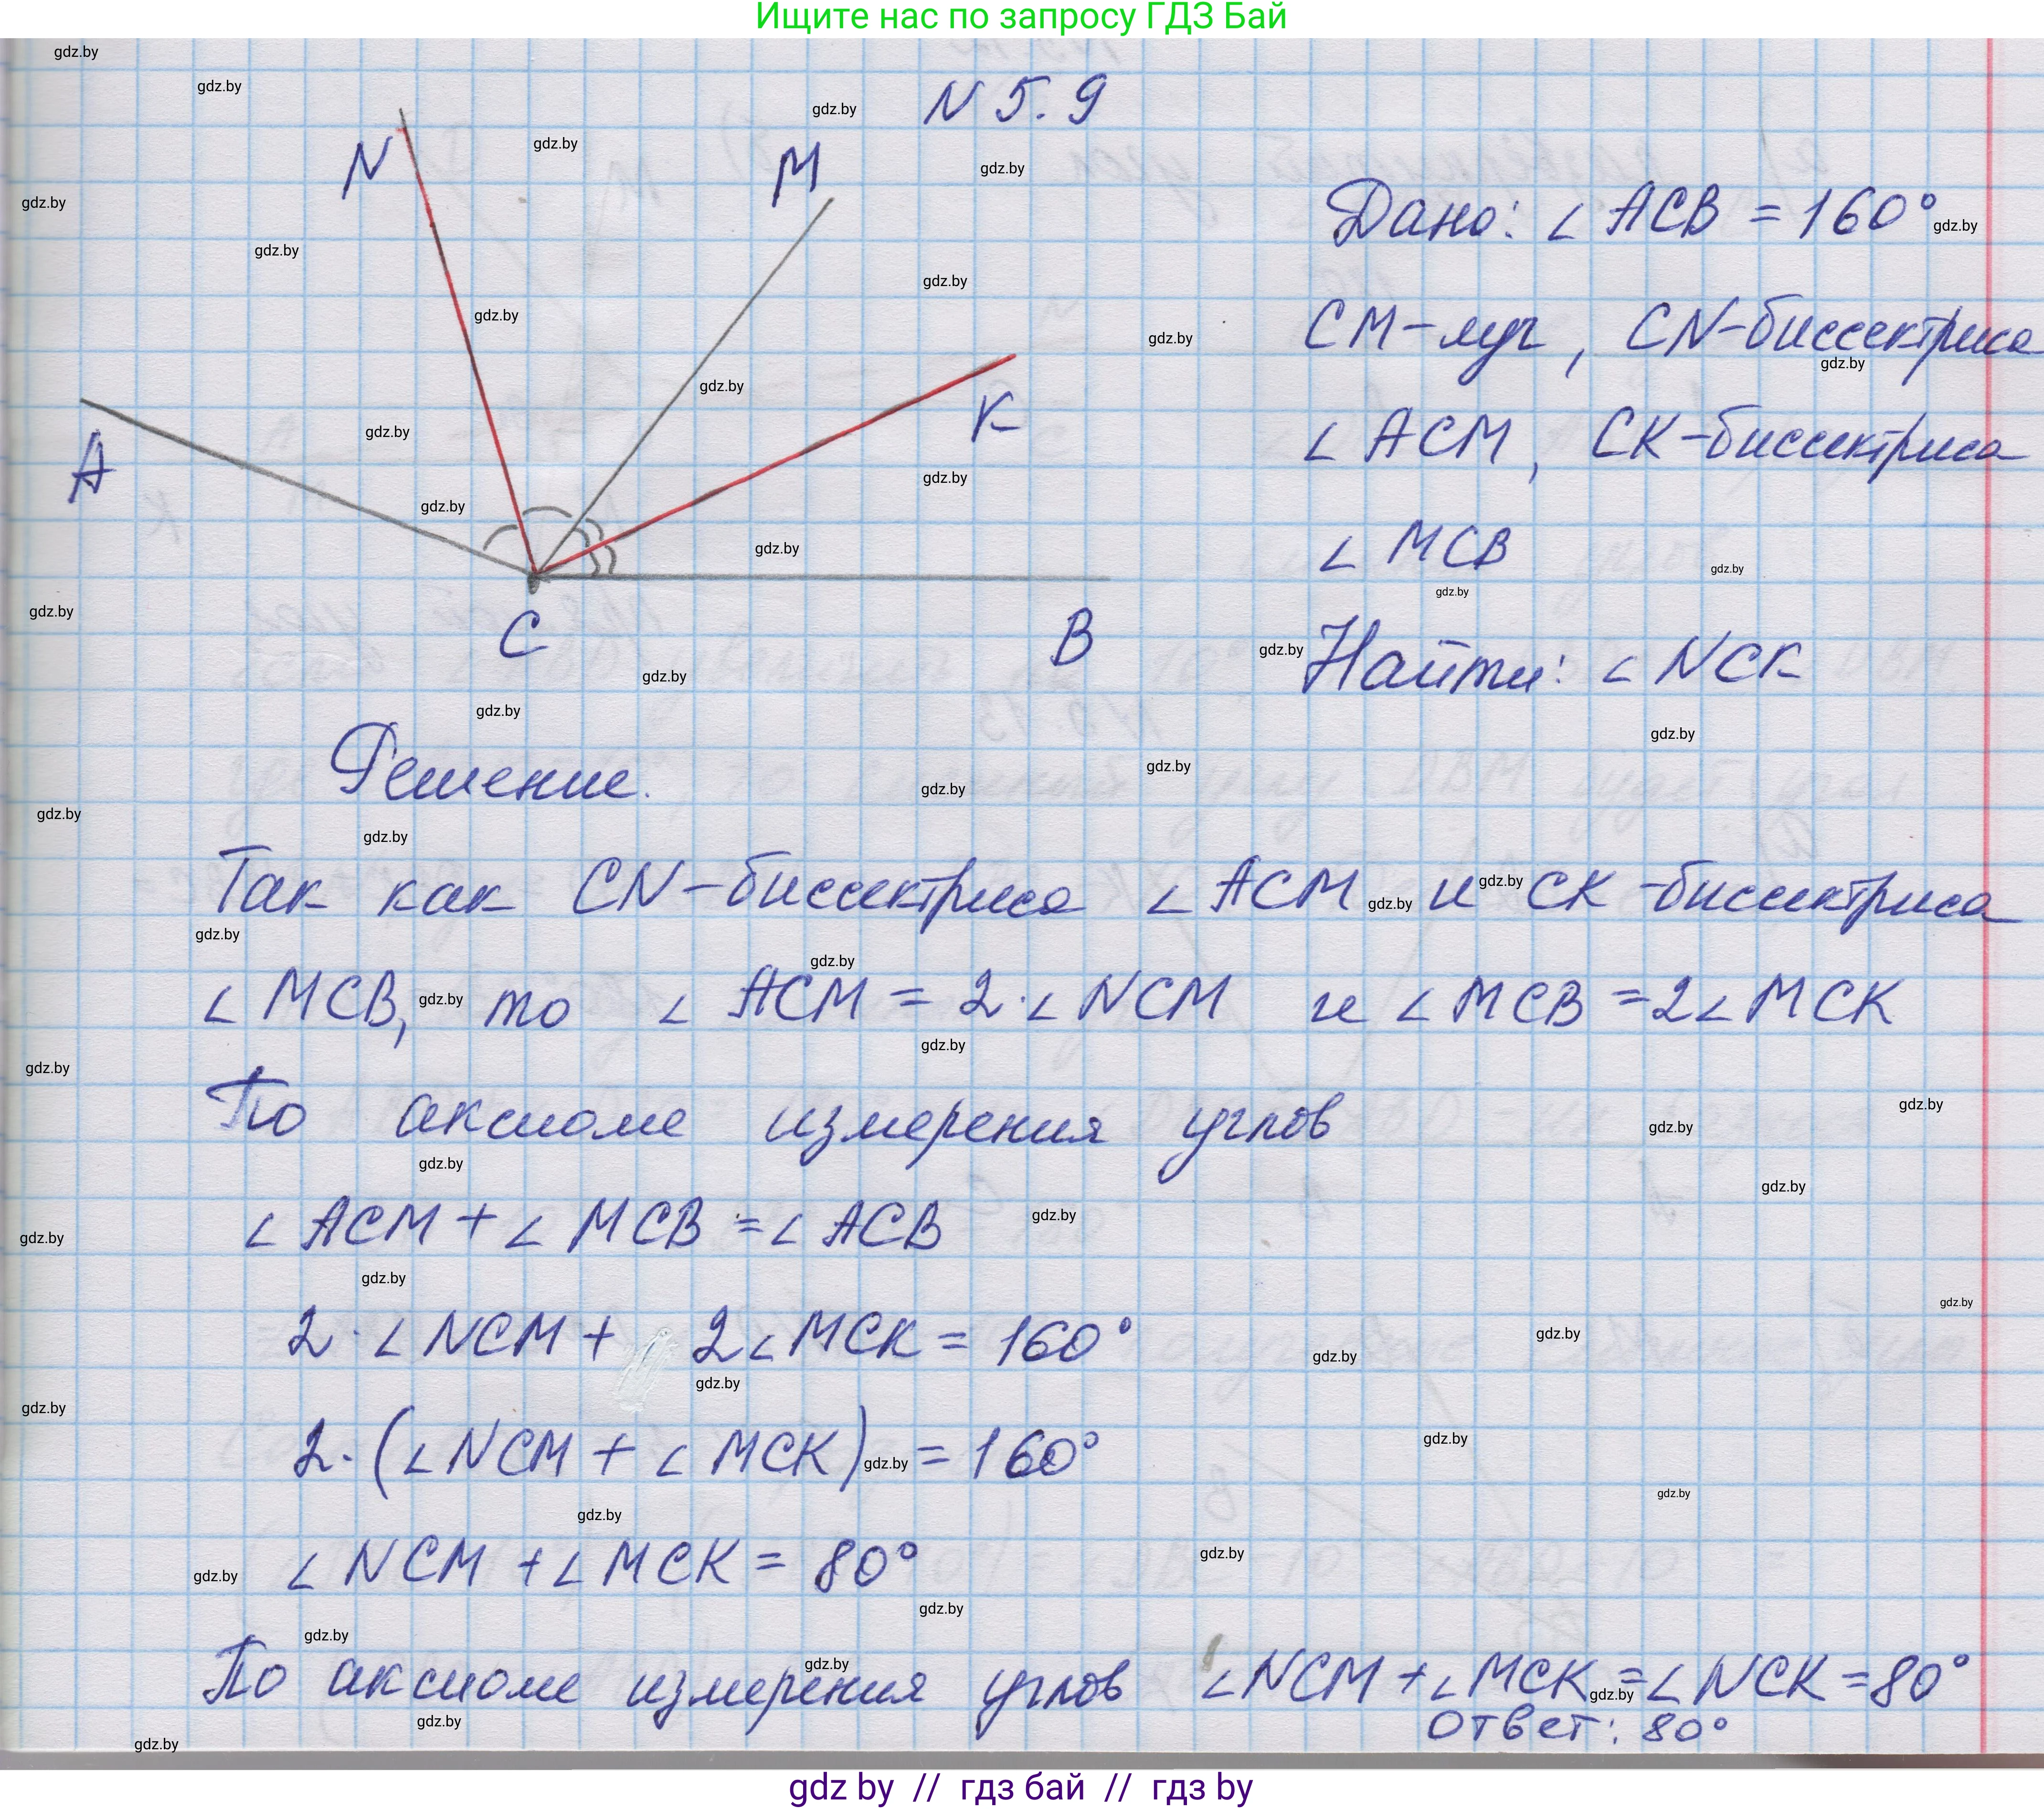 Ищите нас по запросу ГДЗ Бай
N 5.9
N
M
K
A
C
B
Дано: ∠ ACB = 160°
CM-луч, CN-биссектриса
∠ ACM, CK-биссектриса
∠ MCB
Найти: ∠ NCK
Решение.
Так как CN-биссектриса ∠ ACM и CK-биссектриса
∠ MCB, то ∠ ACM = 2·∠ NCM и ∠ MCB = 2∠ MCK
По аксиоме измерения углов
∠ ACM + ∠ MCB = ∠ ACB
2·∠ NCM + 2∠ MCK = 160°
2·(∠ NCM + ∠ MCK) = 160°
∠ NCM + ∠ MCK = 80°
По аксиоме измерения углов ∠ NCM + ∠ MCK = ∠ NCK = 80°
Ответ: 80°
gdz by // гдз бай // гдз by